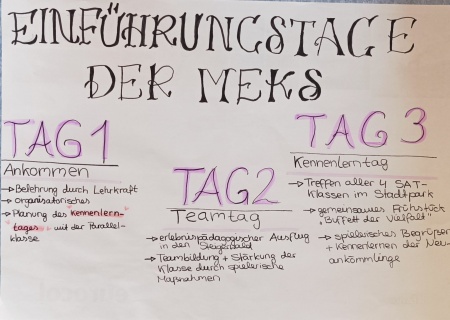 EINFÜHRUNGSTAGE
DER MEKS
TAG 1
Ankommen
→ Belehrung durch Lehrkraft
→ organisatorisches
→ Planung des Kennenlern-
tages mit der Parallel-
klasse
TAG 2
Teamtag
→ erlebnispädagogischer Ausflug
in den Steigerwald
→ Teambildung + Stärkung der
Klasse durch spielerische
Maßnahmen
TAG 3
Kennenlerntag
→ Treffen aller 4 SAT-
Klassen im Stadtpark
→ gemeinsames Frühstück
"Buffett der Vielfalt"
→ spielerisches Begrüßen
+ Kennenlernen der Neu-
ankömmlinge